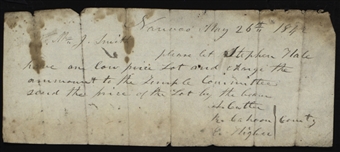 Nauvoo May 26th 184
Mr J. Smith
please let Stephen Hale
have one Low price Lot and charge the
ammount to the Temple Committee
send the price of the Lot by the
A. Cutler
R. Cahoon
E. Higbee